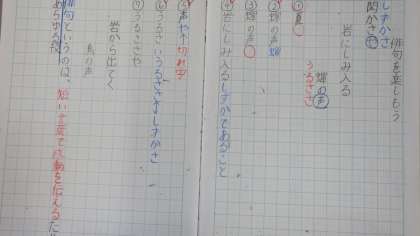 俳句を楽しもう
しずかさ
岩にしみ入る
蝉の声
うるささ
①夏
②蝉の声
③蝉の声
④岩にしみ入るしずかであること
⑤声や 切れ字
⑥うるさいうるささ しずかさ
⑦うるささや
岩から出てく
俳句というのは、短い言葉で感動を伝える